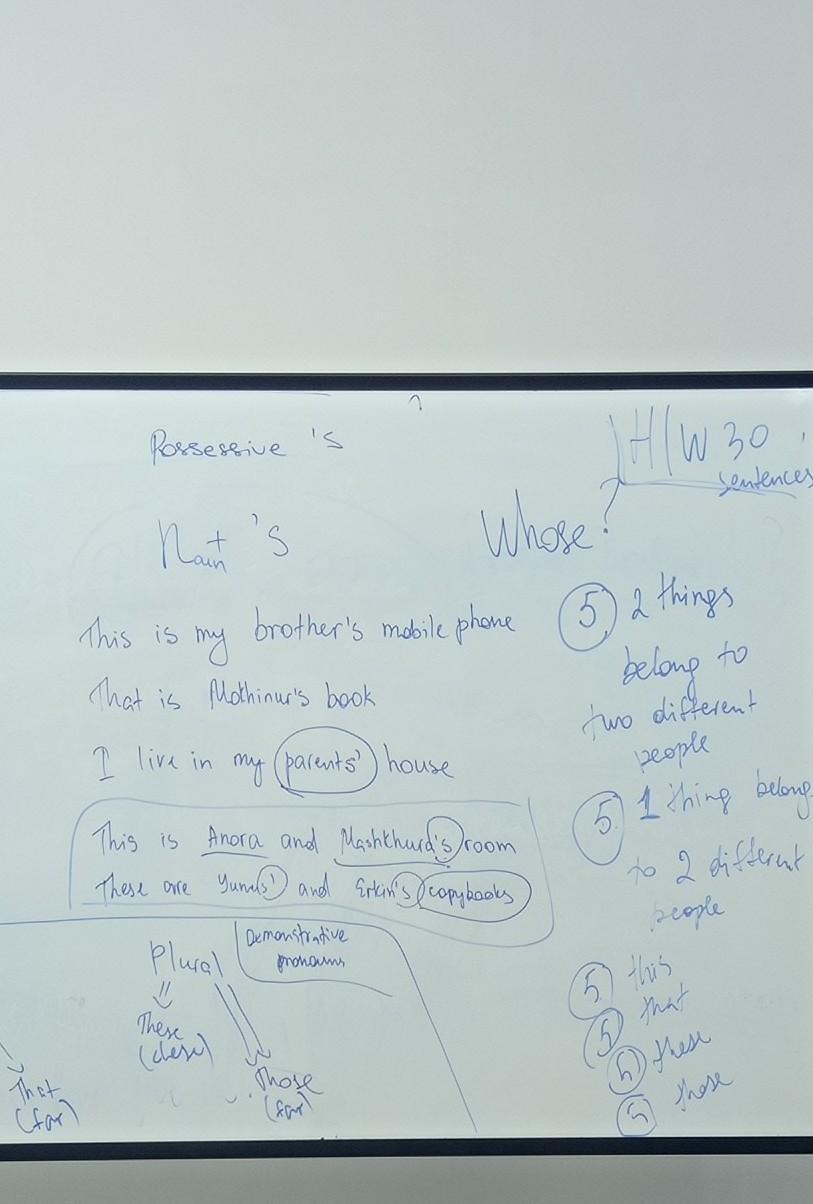 Possessive 's
Noun + 's
This is my brother's mobile phone
That is Mohinur's book
I live in my parents' house
This is Anora and Mashkhura's room
These are Yunus' and Erkin's copybooks
Demonstrative
pronouns
Plural
These
(close)
Those
(far)
That
(far)
H/W 30
sentences
Whose?
5 2 things
belong to
two different
people
5 1 thing belong
to 2 different
people
5 this
5 that
5 these
5 those